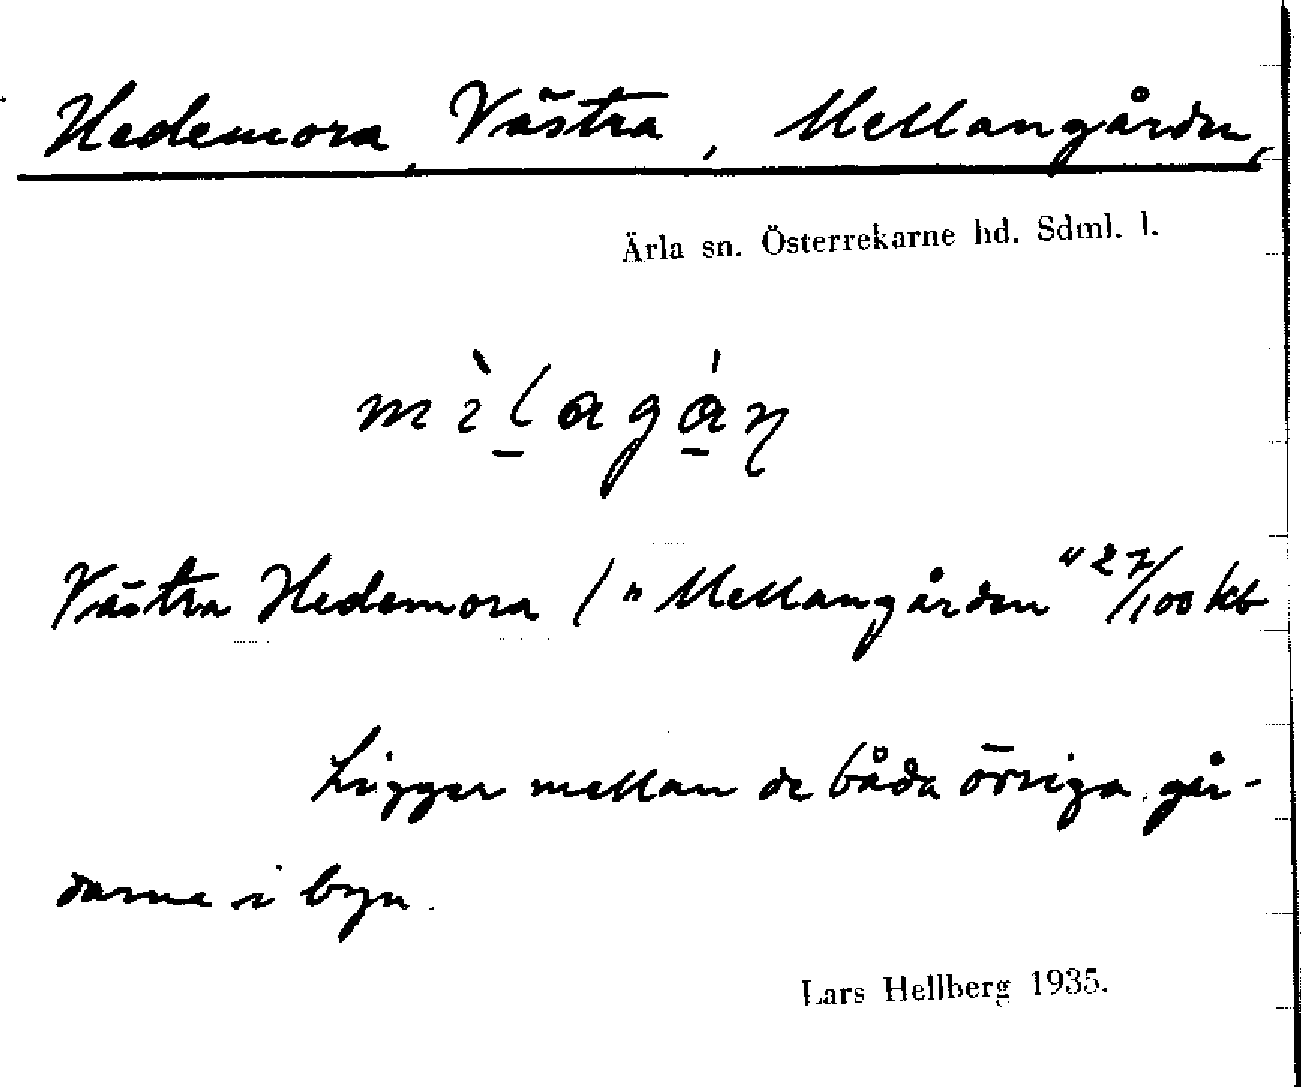 Hedemora, Västra, Mellangården,
Ärla sn. Österrekarne hd. Sdml. l.
Västra Hedemora / "Mellangården" 27/100 kb
Ligger mellan de båda övriga går-
darna i byn.
Lars Hellberg 1935.